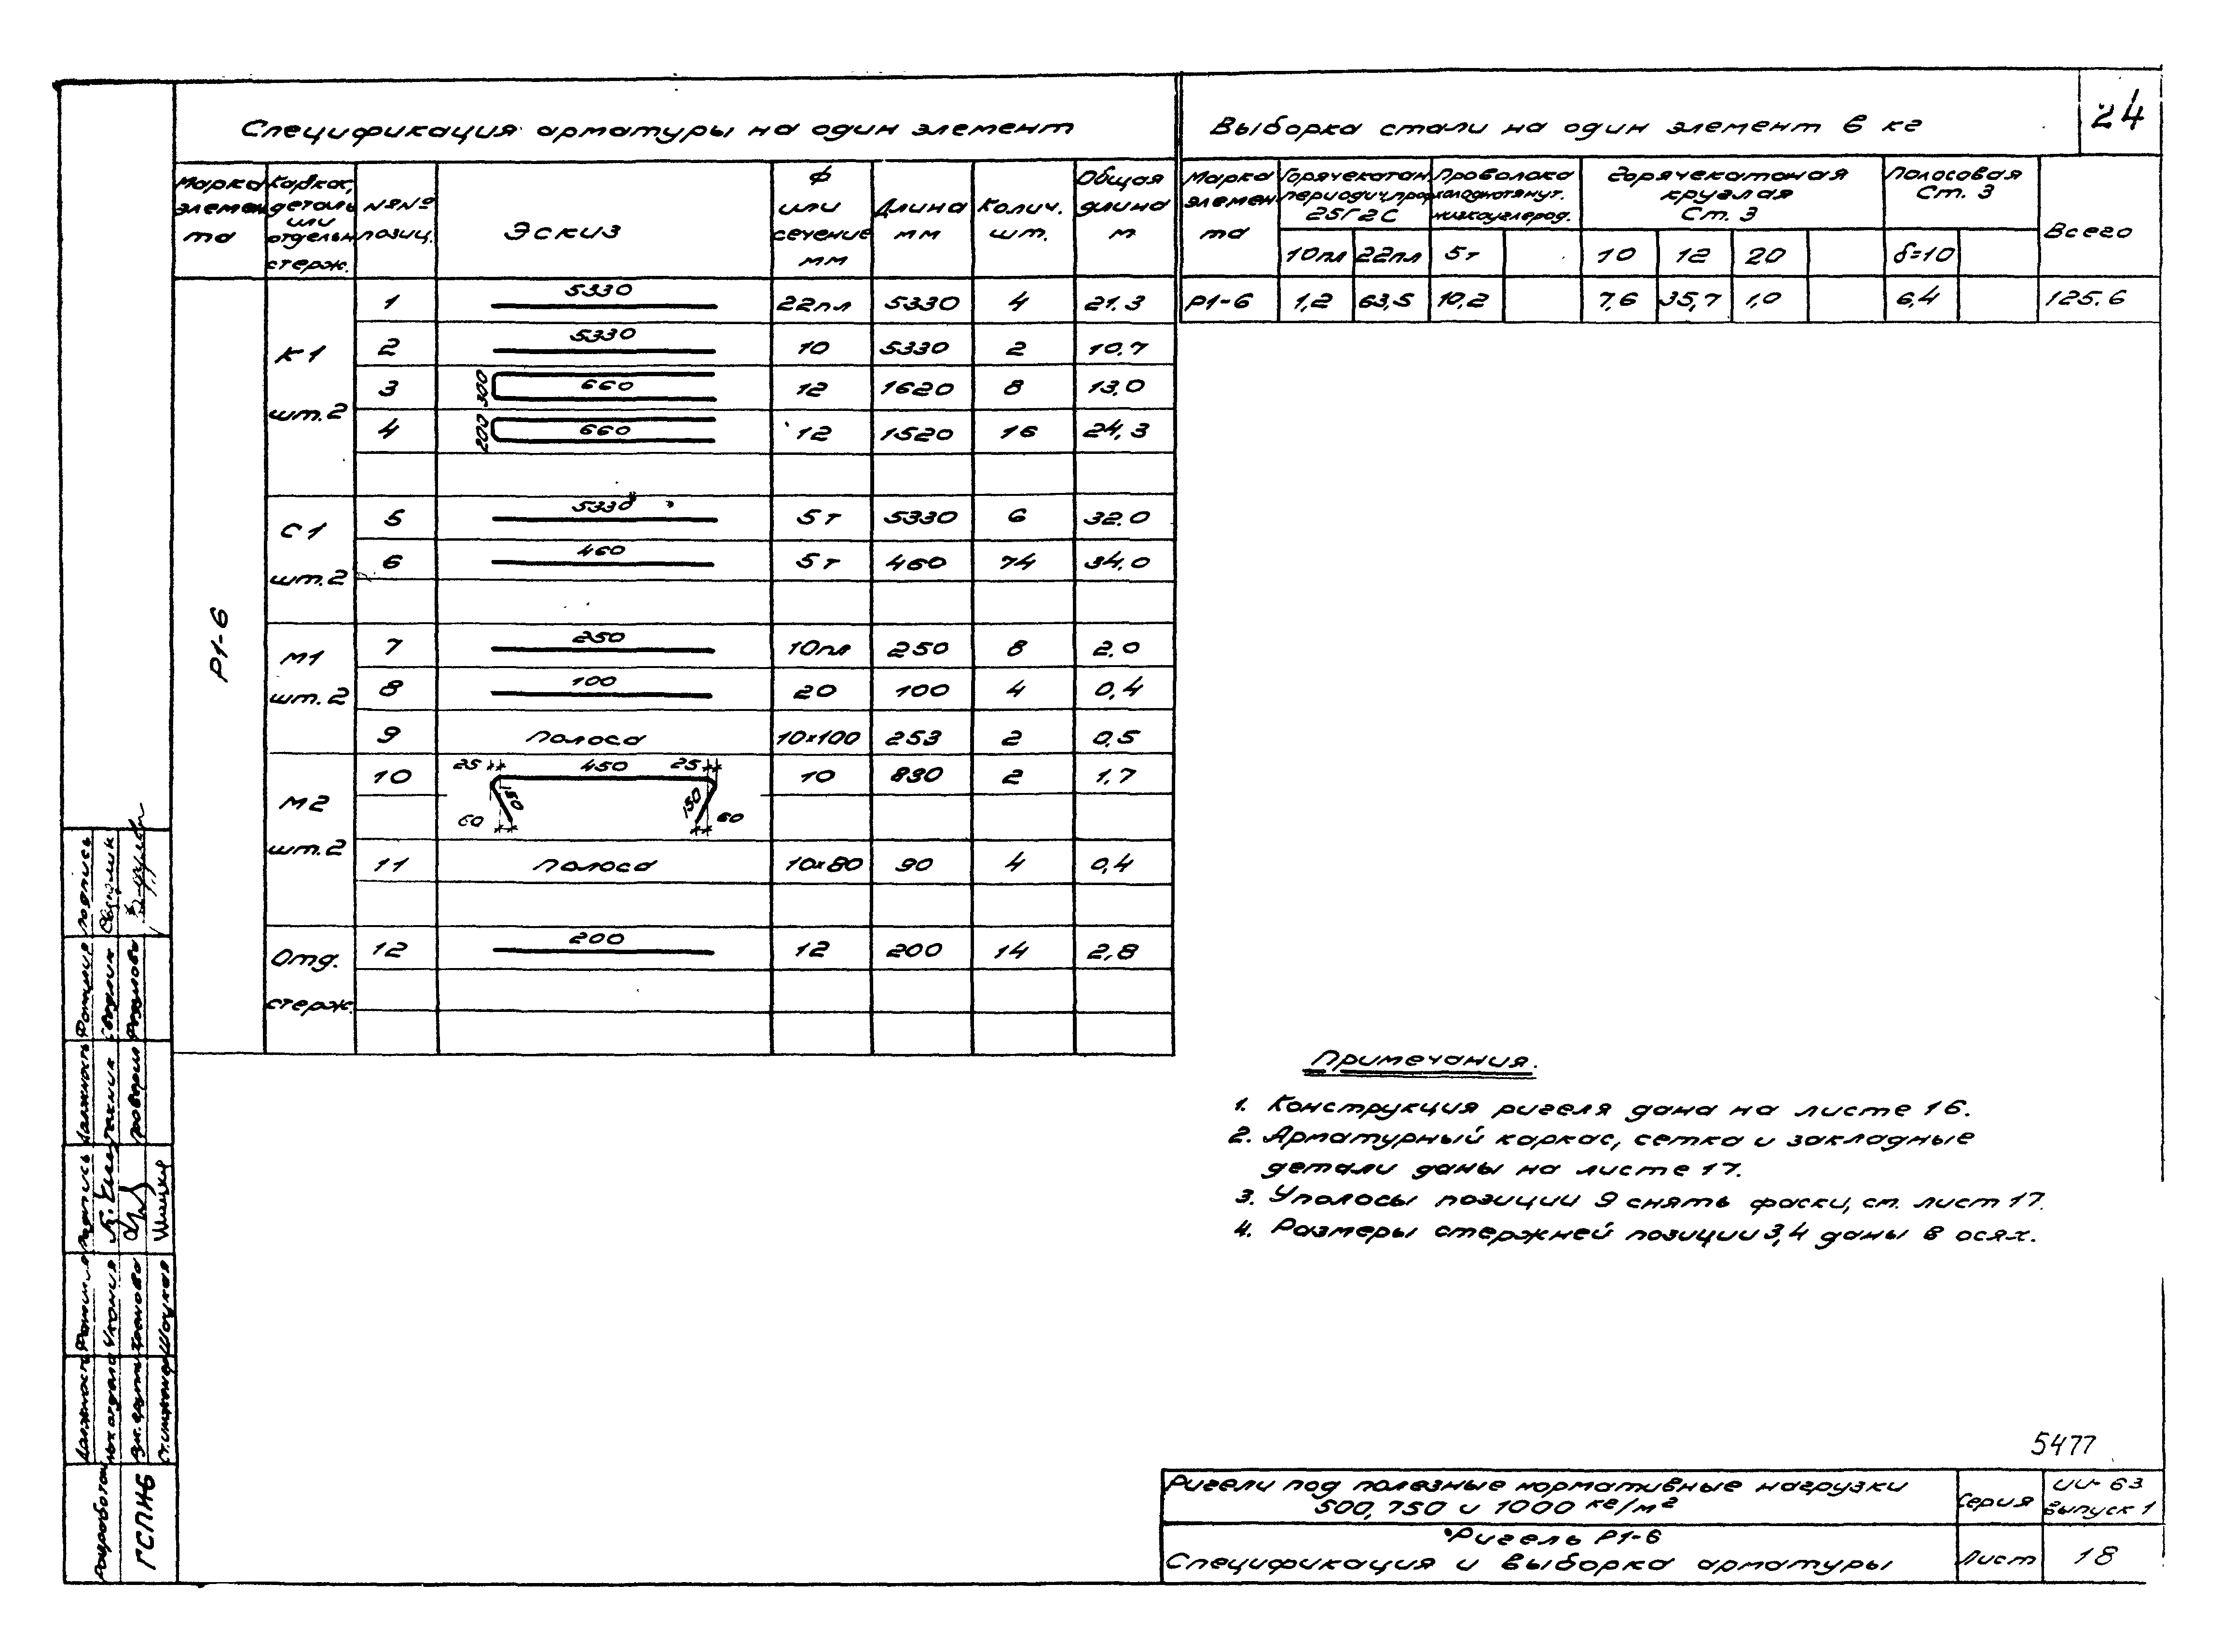 24
Спецификация арматуры на один элемент
Марка элемента | Каркас, деталь или отдельн. стерж. | №№ позиц. | Эскиз | Ф или сечение мм | Длина мм | Колич. шт. | Общая длина м
Р1-6
К1 шт.2
1 | 5330 | 22пл | 5330 | 4 | 21.3
2 | 5330 | 10 | 5330 | 2 | 10.7
3 | 300 660 | 12 | 1620 | 8 | 13.0
4 | 200 660 | 12 | 1520 | 16 | 24,3
С1 шт.2
5 | 5330 | 5т | 5330 | 6 | 32.0
6 | 460 | 5т | 460 | 74 | 34.0
М1 шт.2
7 | 250 | 10пл | 250 | 8 | 2.0
8 | 100 | 20 | 100 | 4 | 0,4
9 | Полоса | 10×100 | 253 | 2 | 0,5
М2 шт.2
10 | 25 450 25 150 150 60 60 | 10 | 830 | 2 | 1.7
11 | Полоса | 10×80 | 90 | 4 | 0,4
Отд. стерж.
12 | 200 | 12 | 200 | 14 | 2,8
Выборка стали на один элемент в кг
Марка элемента | Горячекатан. периодич. проф. 25Г2С | Проволока холоднотянут. низкоуглерод. | Горячекатаная круглая Ст. 3 | Полосовая Ст. 3 | Всего
10пл | 22пл | 5т | 10 | 12 | 20 | δ=10
Р1-6 | 1,2 | 63,5 | 10,2 | 7,6 | 35,7 | 1,0 | 6,4 | 125.6
Примечания.
1. Конструкция ригеля дана на листе 16.
2. Арматурный каркас, сетка и закладные
детали даны на листе 17.
3. У полосы позиции 9 снять фаски, см. лист 17.
4. Размеры стержней позиции 3,4 даны в осях.
5477
Ригели под полезные нормативные нагрузки
500, 750 и 1000 кг/м²
Серия
ИИ-63
Выпуск 1
Ригель Р1-6
Спецификация и выборка арматуры
Лист
18
Разработан
ГСПИ-6
Должность Фамилия Подпись Должность Фамилия Подпись
Нач. отдела
Рук. группы
Ст. инженер
Техник
Проверил